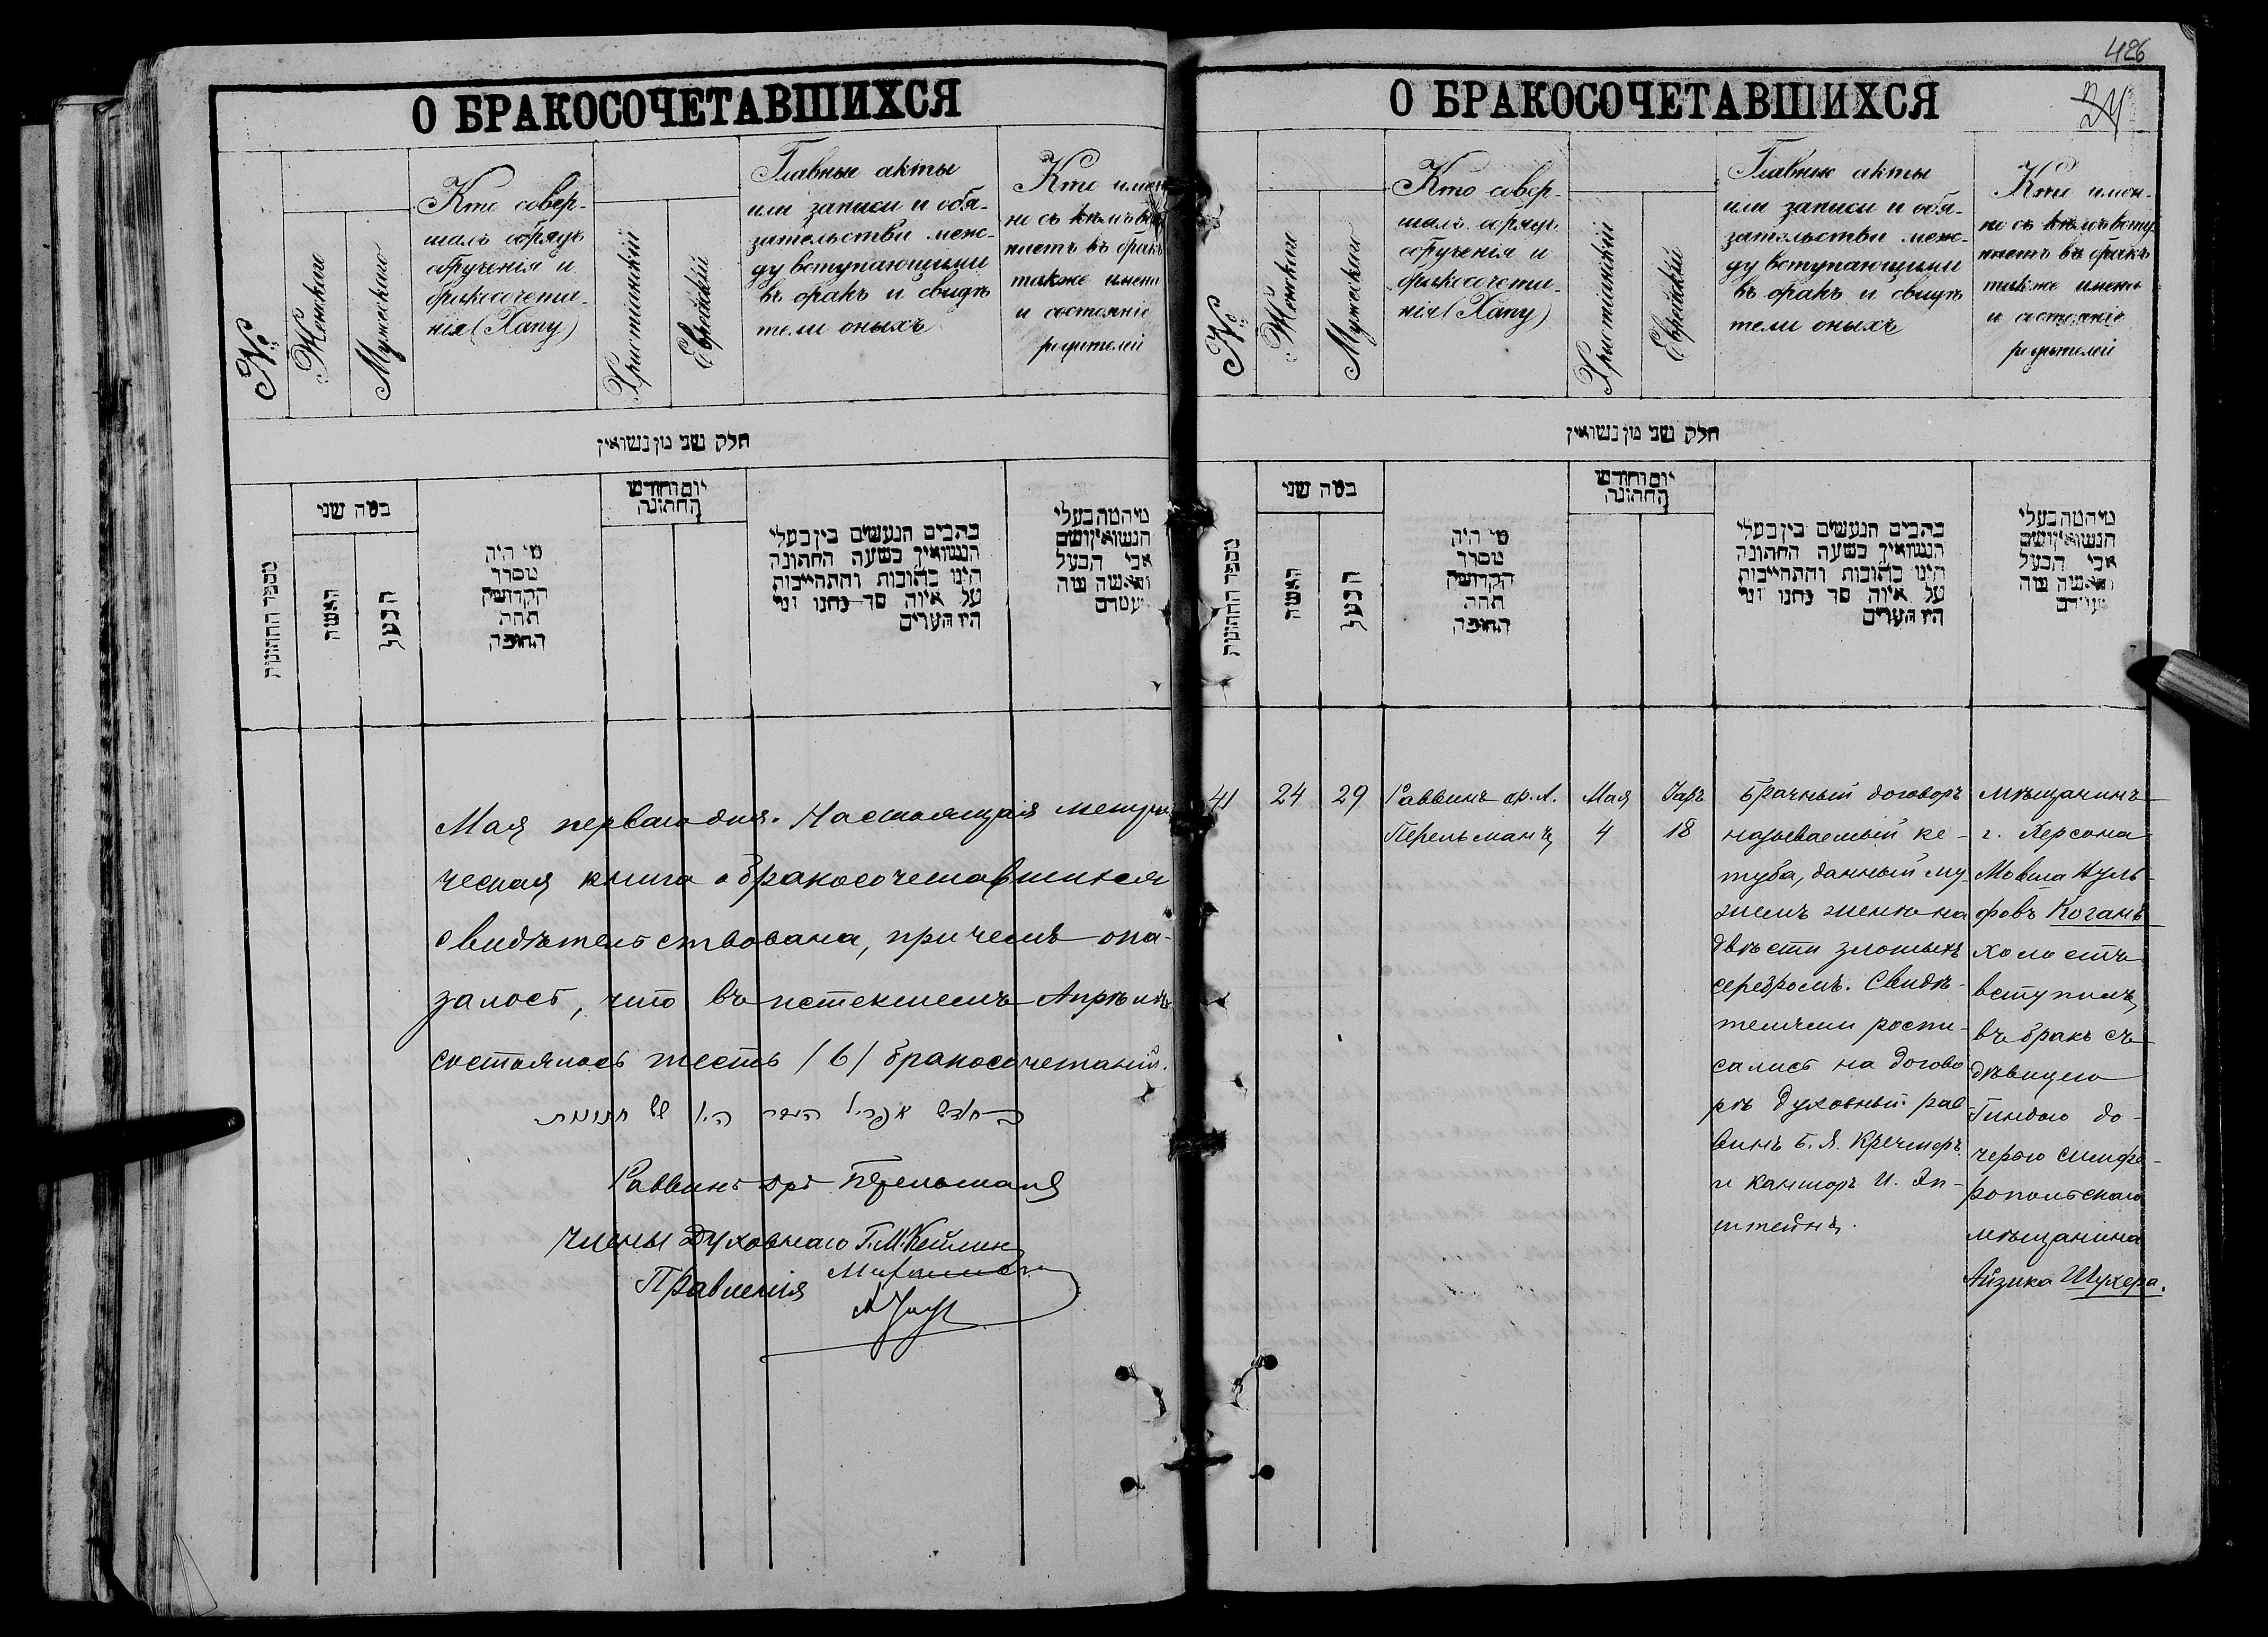 426
О БРАКОСОЧЕТАВШИХСЯ
№
Женскаго
Мужескаго
Кто совер-
шалъ обрядъ
обрученія и
бракосочета-
нія (Хапу)
Христіанскій
Еврейскій
Главные акты
или записи и обя-
зательства меж-
ду вступающими
въ бракъ и свидѣ
тели оныхъ
Кто имен
но съ кѣмъ всту
паетъ въ бракъ
также имена
и состояніе
родителей
חלק שני מן נשואין
מספר החתונות
במה שני
האשה
הבעל
מי היה
מסדר
הקדושין
תחת
החופה
יום וחודש
החתונה
כתבים הנעשים בין בעלי
הנשואין בשעה החתונה
היינו כתובות והתחייבות
על איזה סך נתנו ומי
היו העדים
מיהמה בעלי
הנשואין ושם
אבי הבעל
והאשה מה
מעמדם
Мая перваго дня. Настоящая метри
ческая книга о бракосочетавшихся
свидѣтельствована, при чемъ ока-
залось, что въ истекшемъ Апрѣлѣ
состоялось шесть /6/ бракосочетаній.
אפריל
Раввинъ дръ Перельманъ
Члены Духовнаго Г. М. Кейлинъ
Правленія
О БРАКОСОЧЕТАВШИХСЯ
24
№
Женскаго
Мужескаго
Кто совер-
шалъ обрядъ
обрученія и
бракосочета-
нія (Хапу)
Христіанскій
Еврейскій
Главные акты
или записи и обя-
зательства меж-
ду вступающими
въ бракъ и свидѣ
тели оныхъ
Кто имен-
но съ кѣмъ всту
паетъ въ бракъ
также имена
и состояніе
родителей
חלק שני מן נשואין
מספר החתונות
במה שני
האשה
הבעל
מי היה
מסדר
הקדושין
תחת
החופה
יום וחודש
החתונה
כתבים הנעשים בין בעלי
הנשואין בשעה החתונה
היינו כתובות והתחייבות
על איזה סך נתנו ומי
היו העדים
מיהמה בעלי
הנשואין ושם
אבי הבעל
והאשה מה
מעמדם
41
24
29
Раввинъ др. А.
Перельманъ
Мая
4
Іаръ
18
Брачный договоръ
называемый ке-
туба, данный му-
жемъ женѣ на
двѣсти злотыхъ
серебромъ. Свидѣ-
телями распи-
сались на догово
рѣ духовный рав
винъ Б. Я. Кречмеръ
и канторъ И. Эп-
штейнъ.
Мѣщанинъ
г. Херсона
Мовша Нуль-
фовъ Коганъ
холостъ
вступилъ
въ бракъ съ
дѣвицею
Гиндою до-
черью симфе-
ропольскаго
мѣщанина
Айзика Шухера.